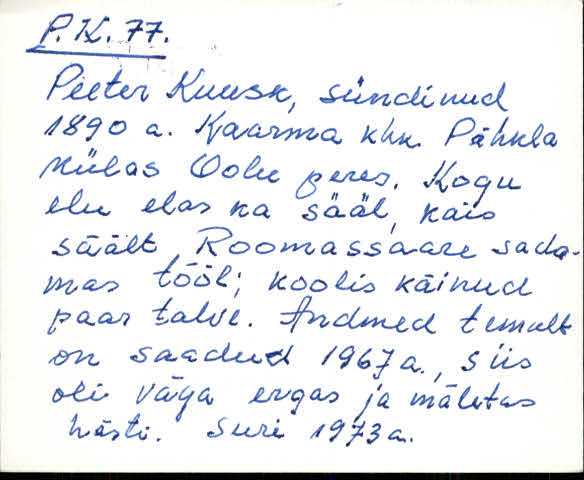 P.K. 77.
Peeter Kuusk, sündinud
1890 a. Kaarma khk. Pähkla
külas Oolu peres. Kogu
elu elas ka sääl, käis
säält Roomassaare sada-
mas tööl; koolis käinud
paar talve. Andmed temalt
on saadud 1967 a., siis
oli väga ergas ja mäletas
hästi. Suri 1973 a.